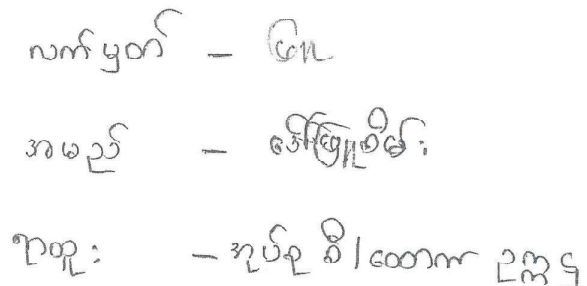 လက်မှတ် - ဖြူ
အမည် - ဒေါ်ဖြူစိမ်း
ရာထူး - အုပ်စု စီ/ထောက် ဥက္ကဋ္ဌ